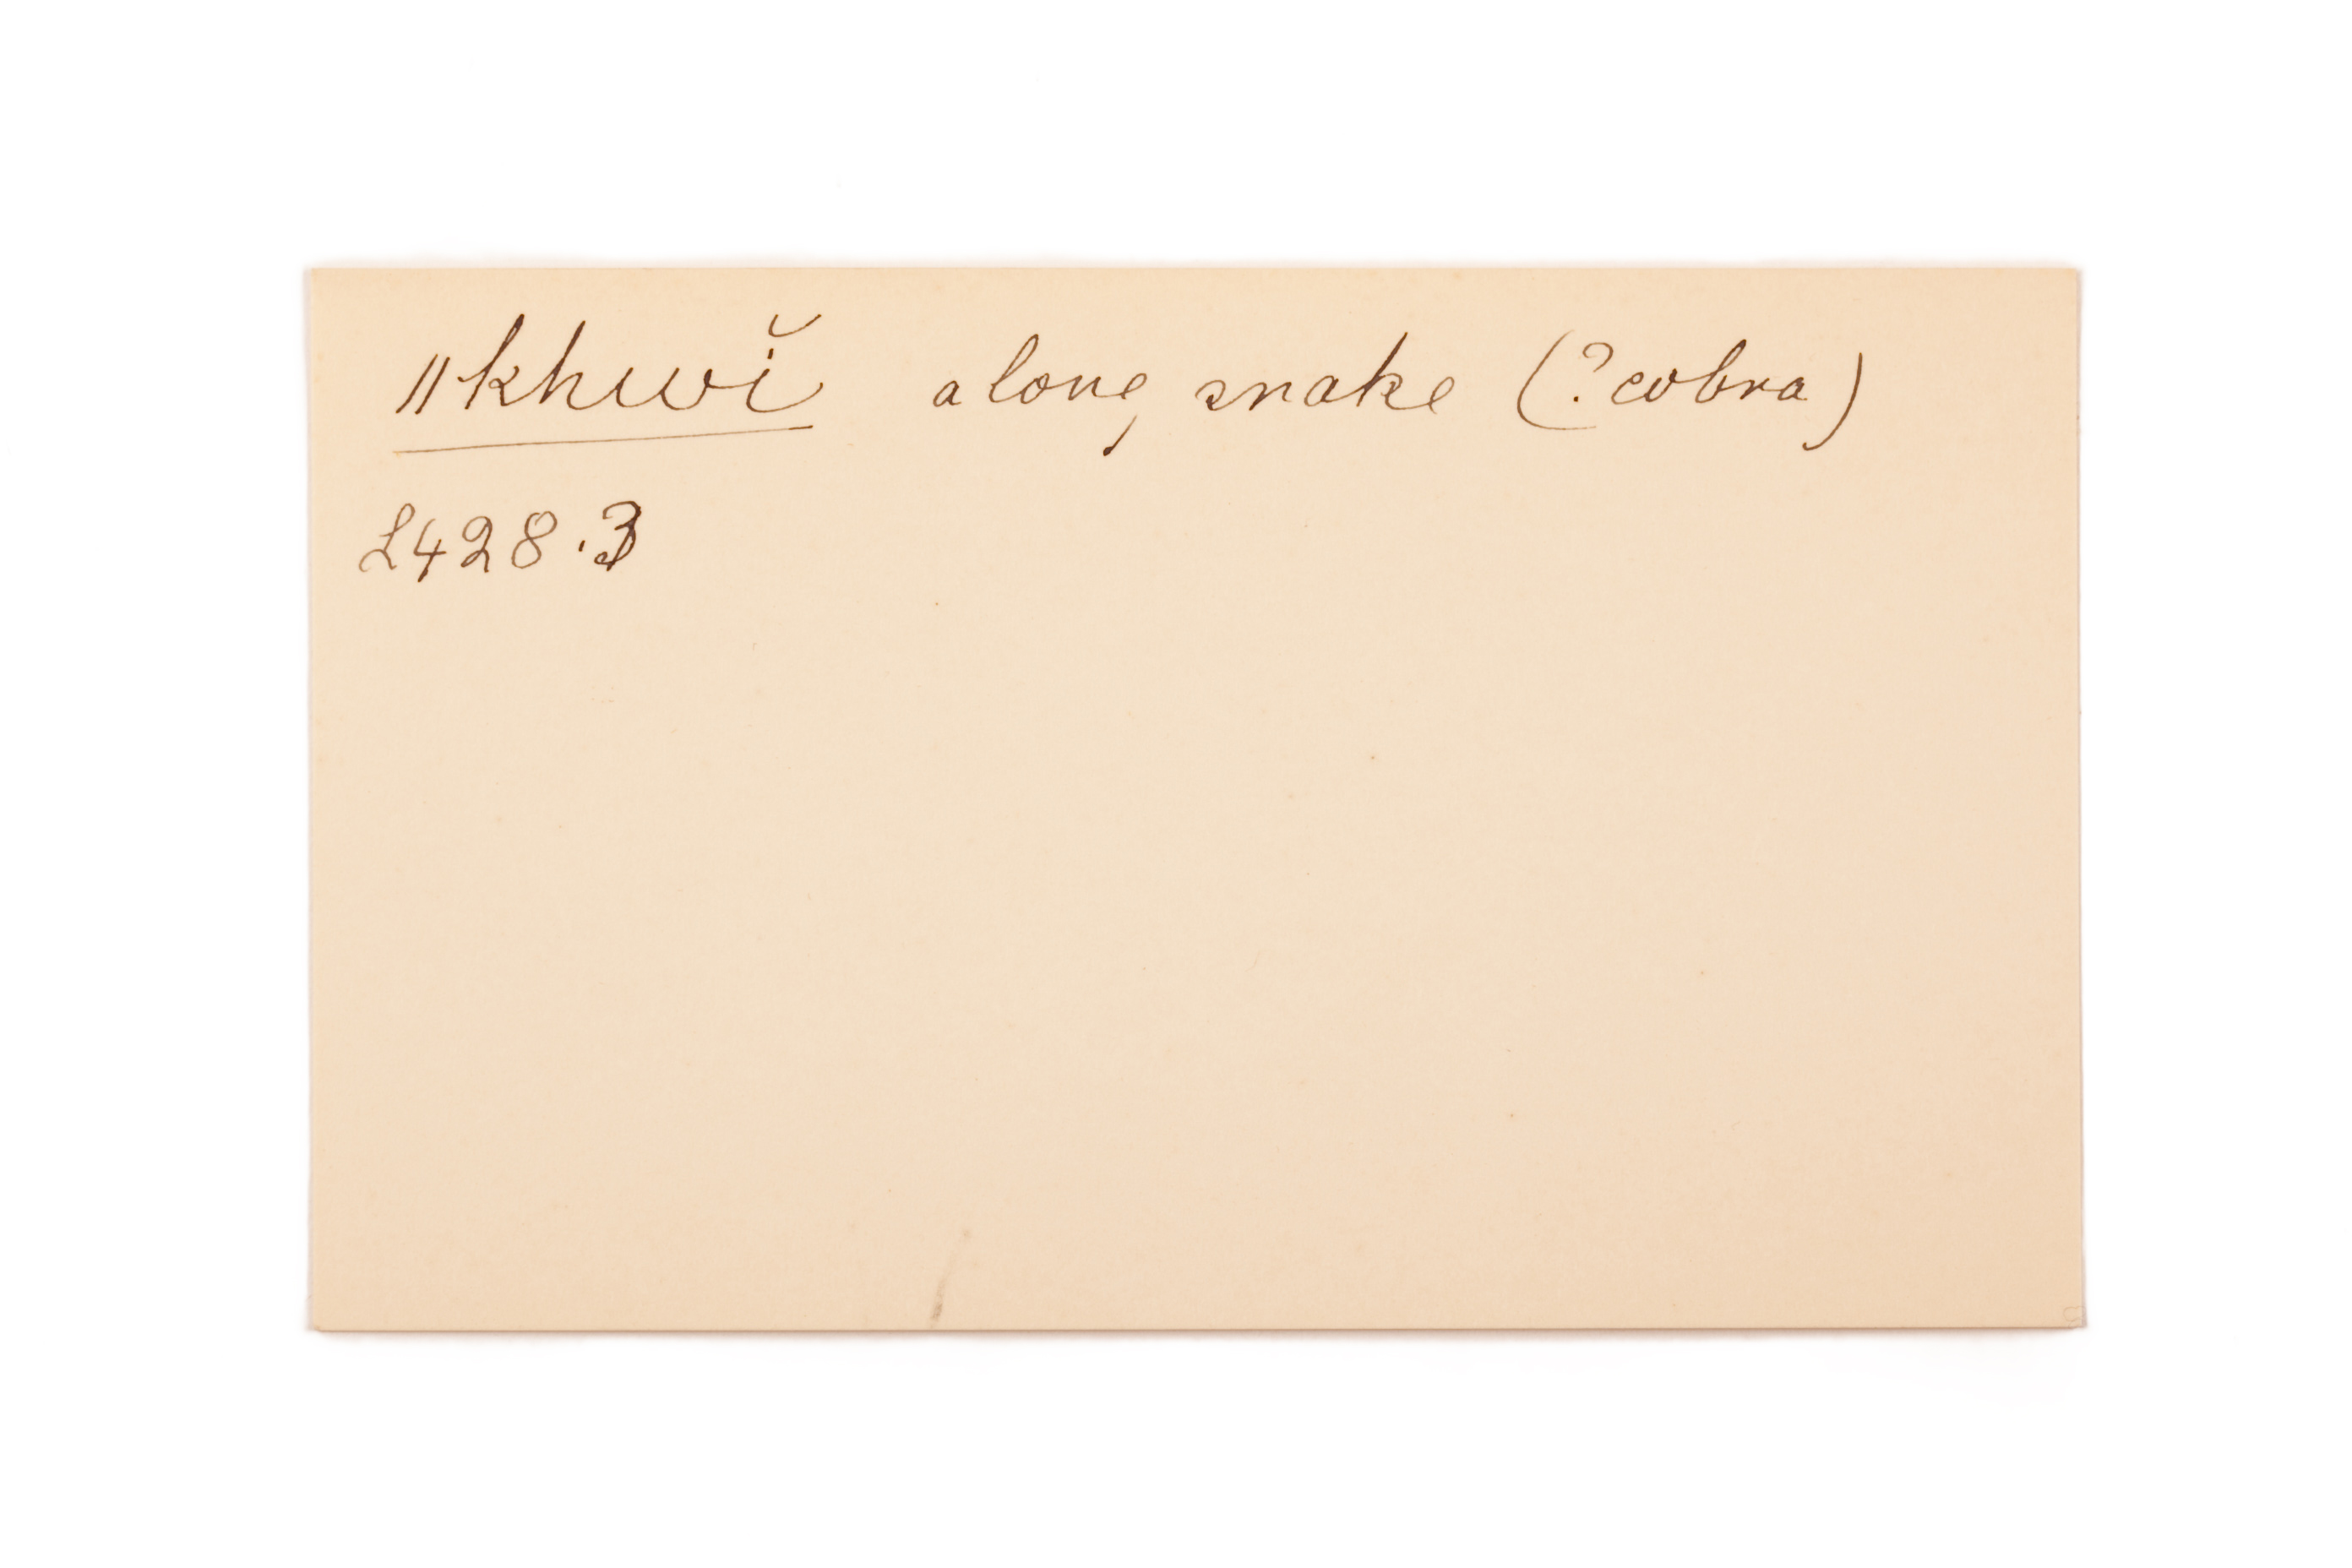 ǁkhwĭ a long snake (? cobra)
L428.3